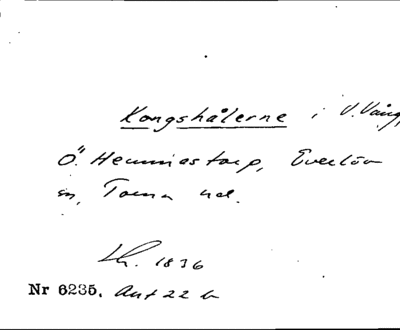 Kongshålerne i V. Vång,
Ö. Hemmestorp, Everlöv
sn, Torna hd.
Lh. 1836
Nr 6235. Ant 22 b